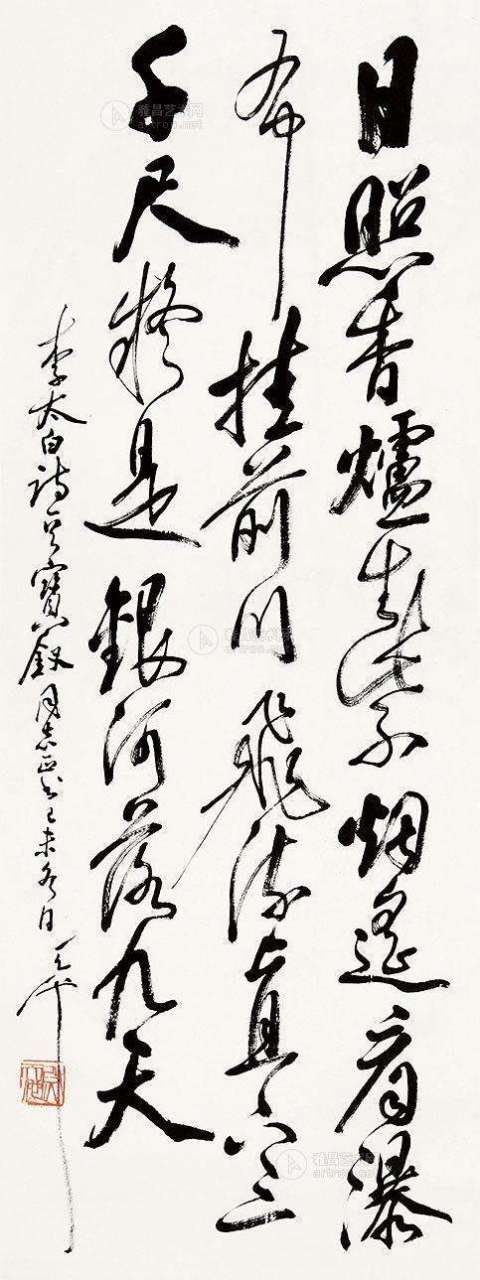 日照香爐生紫烟遙看瀑
布挂前川飛流直下三
千尺疑是銀河落九天
李太白詩 寶釵同志正 己未冬日
雅昌艺术网